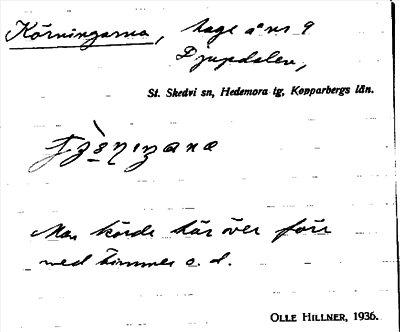 Körningarna, hage å nr 9
Djupdalen,
St. Skedvi sn, Hedemora tg, Kopparbergs län.
Man körde här över förr
med timmer o. d.
OLLE HILLNER, 1936.